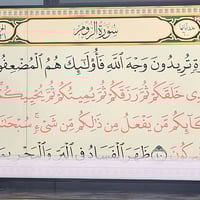 سُورَةُ الرُّومِ
ةٍ تُرِيدُونَ وَجْهَ ٱللَّهِ فَأُو۟لَٰٓئِكَ هُمُ ٱلْمُضْعِفُو
ذِى خَلَقَكُمْ ثُمَّ رَزَقَكُمْ ثُمَّ يُمِيتُكُمْ ثُمَّ يُحْيِيكُ
كَآئِكُم مَّن يَفْعَلُ مِن ذَٰلِكُم مِّن شَىْءٍ ۚ سُبْحَٰ
كُونَ ٤٠ ظَهَرَ ٱلْفَسَادُ فِى ٱلْبَرِّ وَٱلْبَحْرِ بِمَ